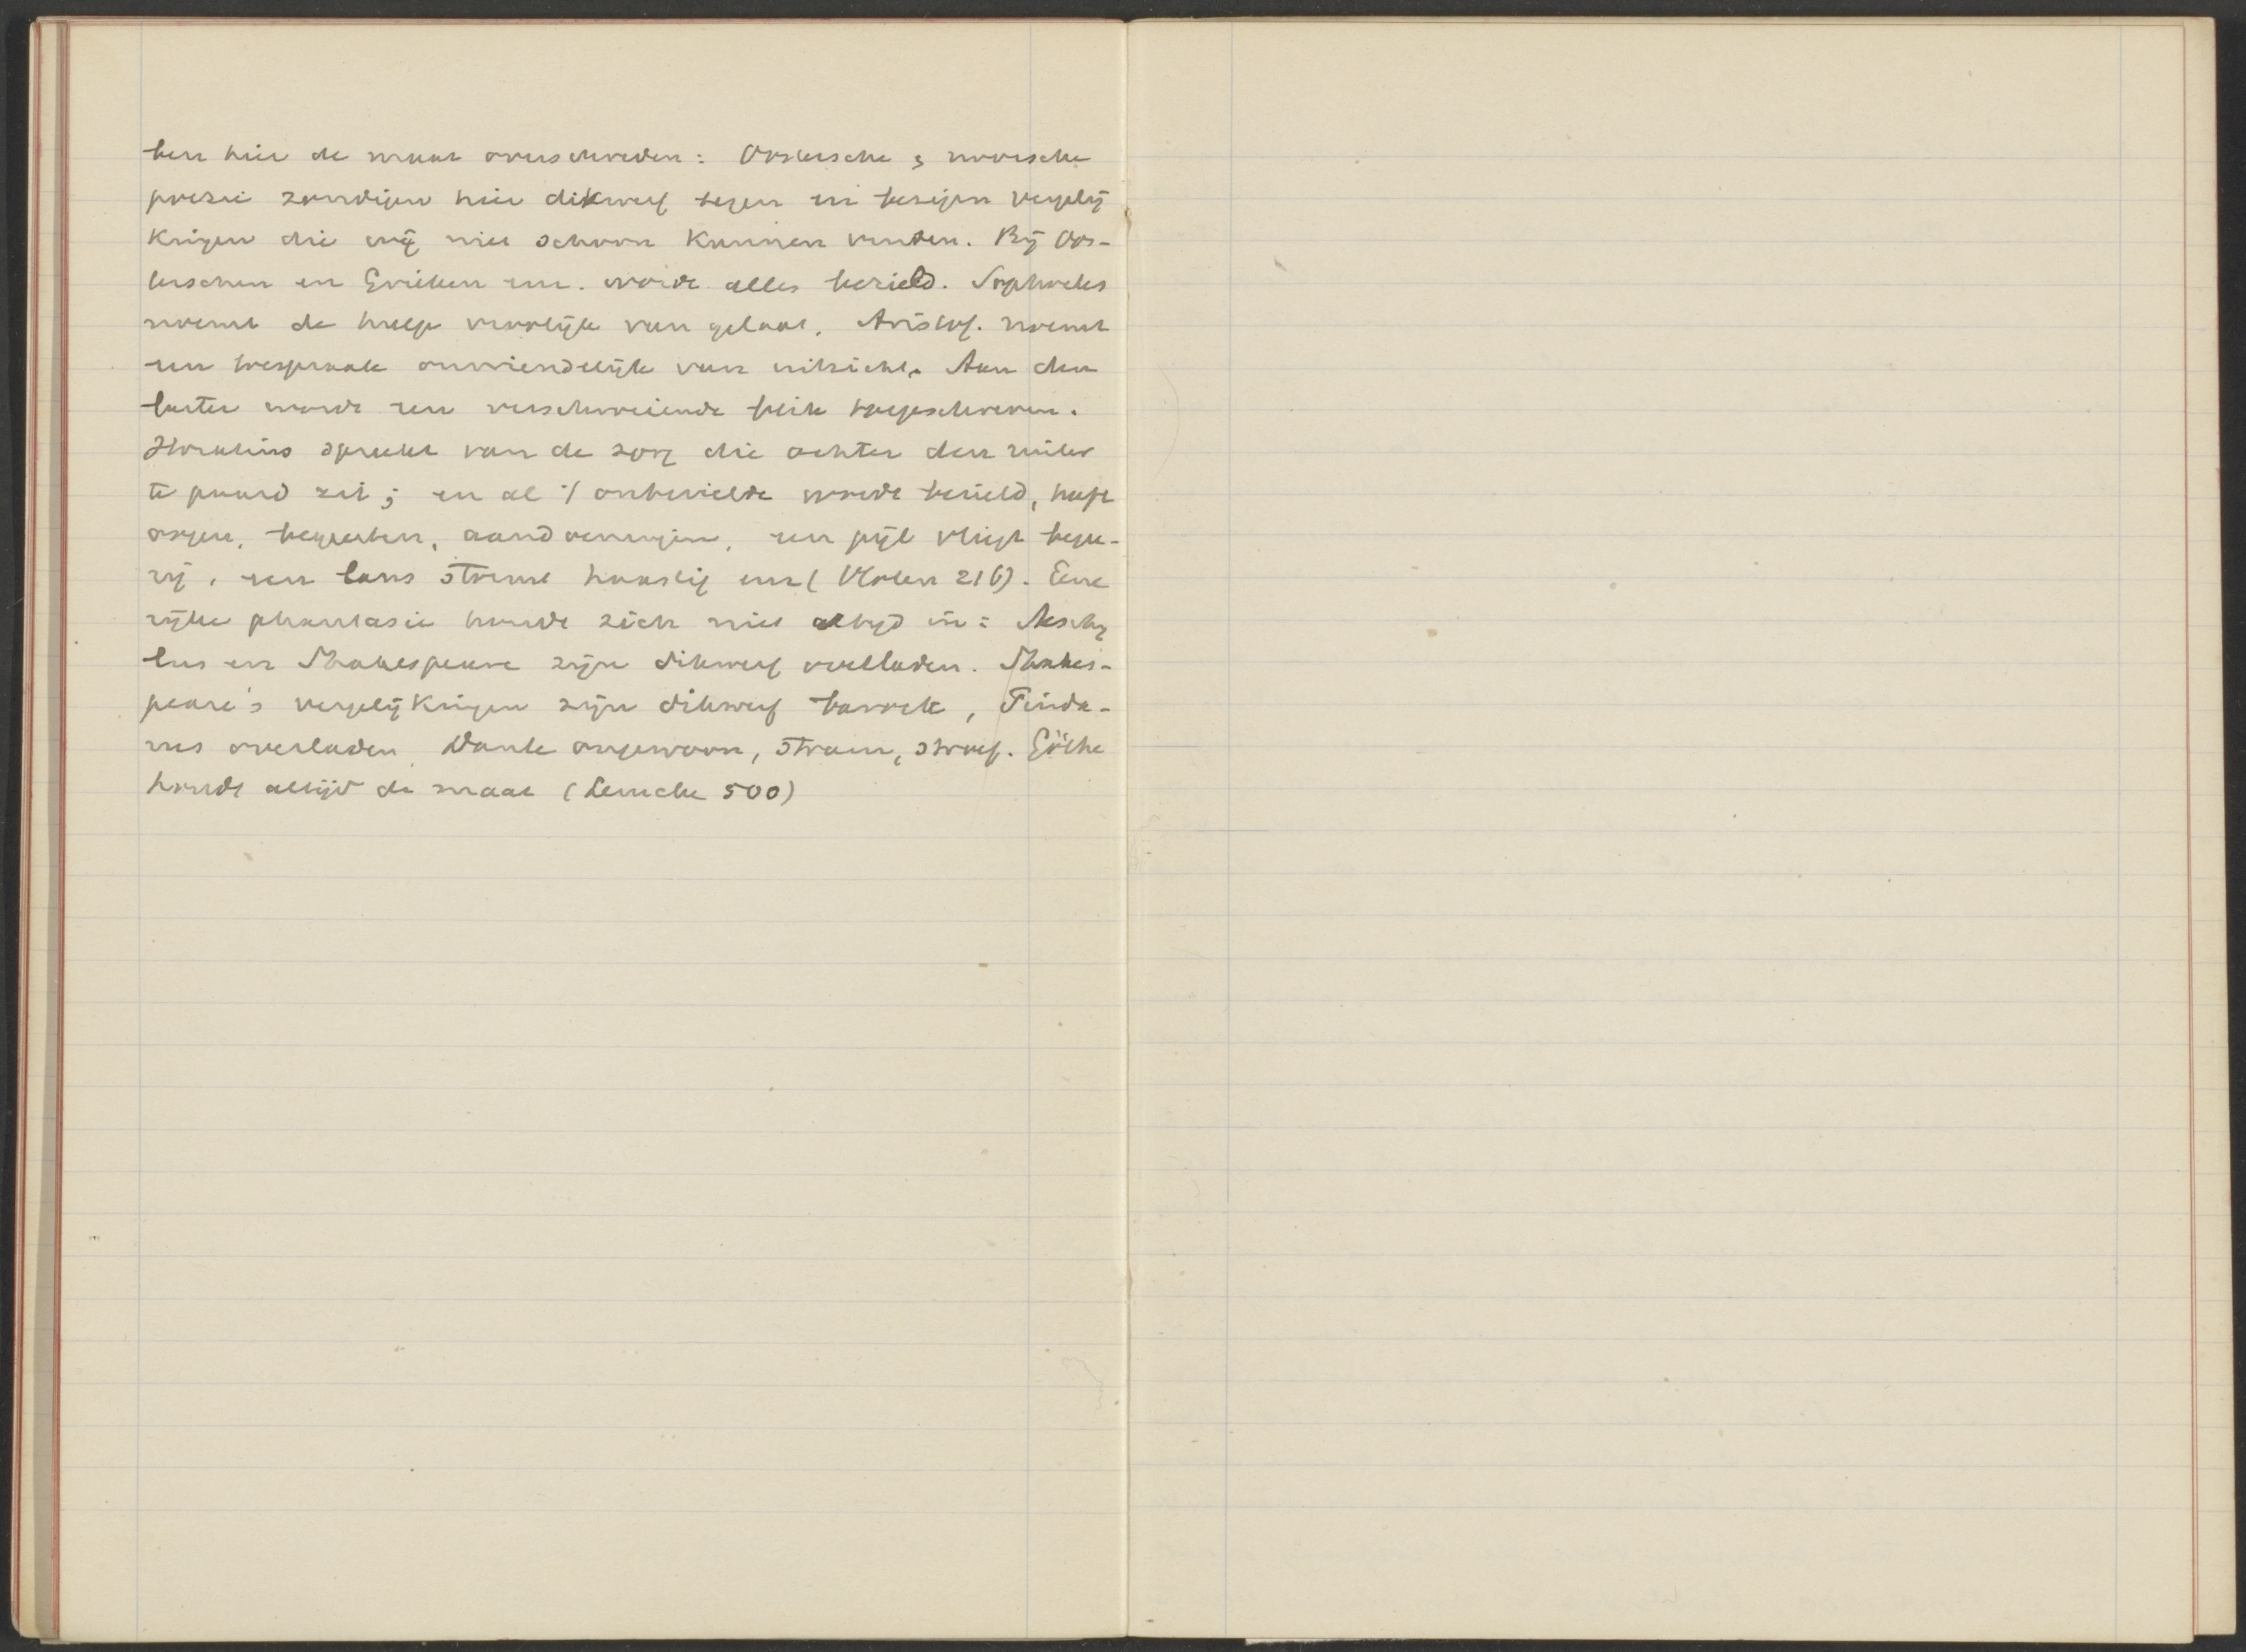 ben hier de maat overschreden: Oostersche & noorsche
poezie zondigen hier dikwerf tegen en bezigen vergelij
kingen die wij niet schoon kunnen vinden. Bij Oos-
terschen en Grieken enz. wordt alles bezield. Sophocles
noemt de hulp vroolijk van gelaat. Aristof. noemt
een onvriendelijk van uitzicht. Aan den
wordt een blik toegeschreven.
Horatius spreekt van de zorg die achter den ruiter
te paard zit; en al 't onbezielde wordt bezield, haft
oogen, begeerten, aandoeningen, een pijl vliegt begee-
rig, een lans stormt haastig enz (Vloten 216). Eene
rijke phantasie houdt zich niet altijd in: Aeschy
lus en Shakespeare zijn dikwerf overladen. Shakes-
peare's vergelijkingen zijn dikwerf barock, Pinda-
rus overladen, Dante ongewoon, stram, stroef. Göthe
houdt altijd de maat (Lemcke 500)